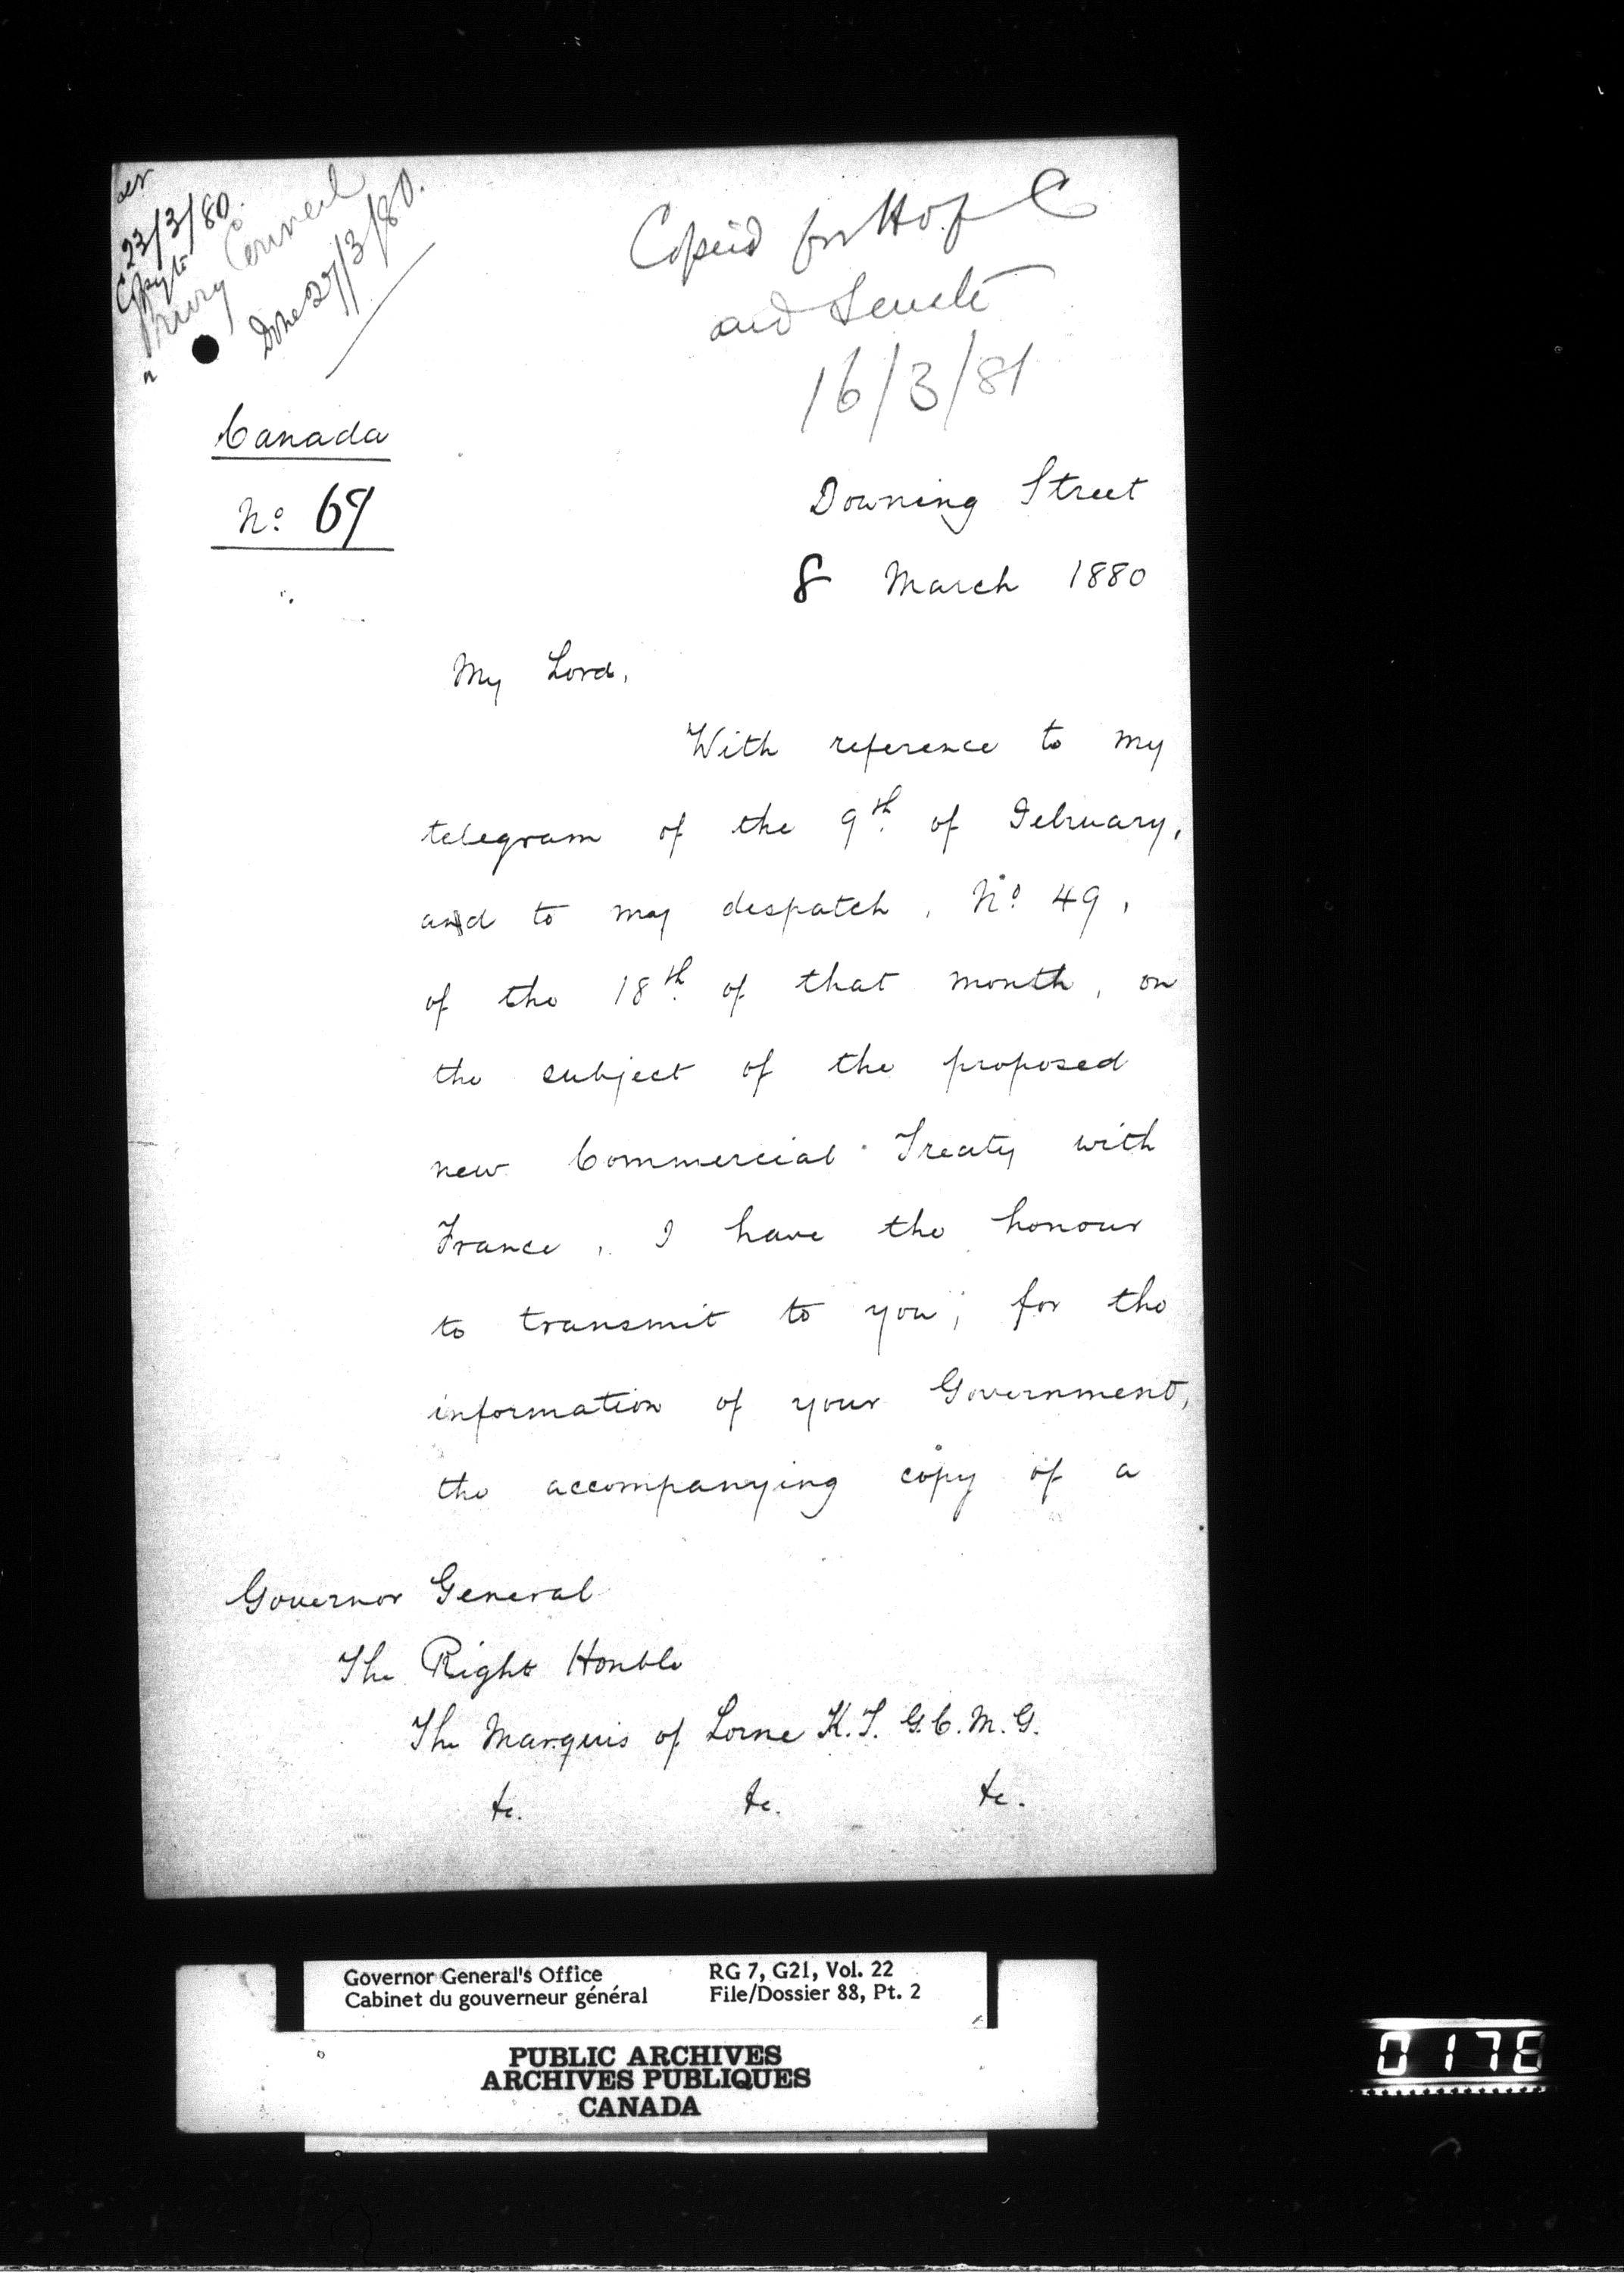 23/3/80.
Copy to
Privy Council
Done 27/3/80.
Copied for H of C
and Senate
16/3/81
Canada
No. 69
Downing Street
8 March 1880
My Lord,
With reference to my
telegram of the 9th. of February,
and to my despatch, No. 49,
of the 18th. of that month, on
the subject of the proposed
new Commercial Treaty with
France, I have the honour
to transmit to you, for the
information of your Government,
the accompanying copy of a
Governor General
The Right Honble
The Marquis of Lorne K.T. G.C.M.G.
&c. &c. &c.
Governor General's Office
Cabinet du gouverneur général
RG 7, G21, Vol. 22
File/Dossier 88, Pt. 2
PUBLIC ARCHIVES
ARCHIVES PUBLIQUES
CANADA